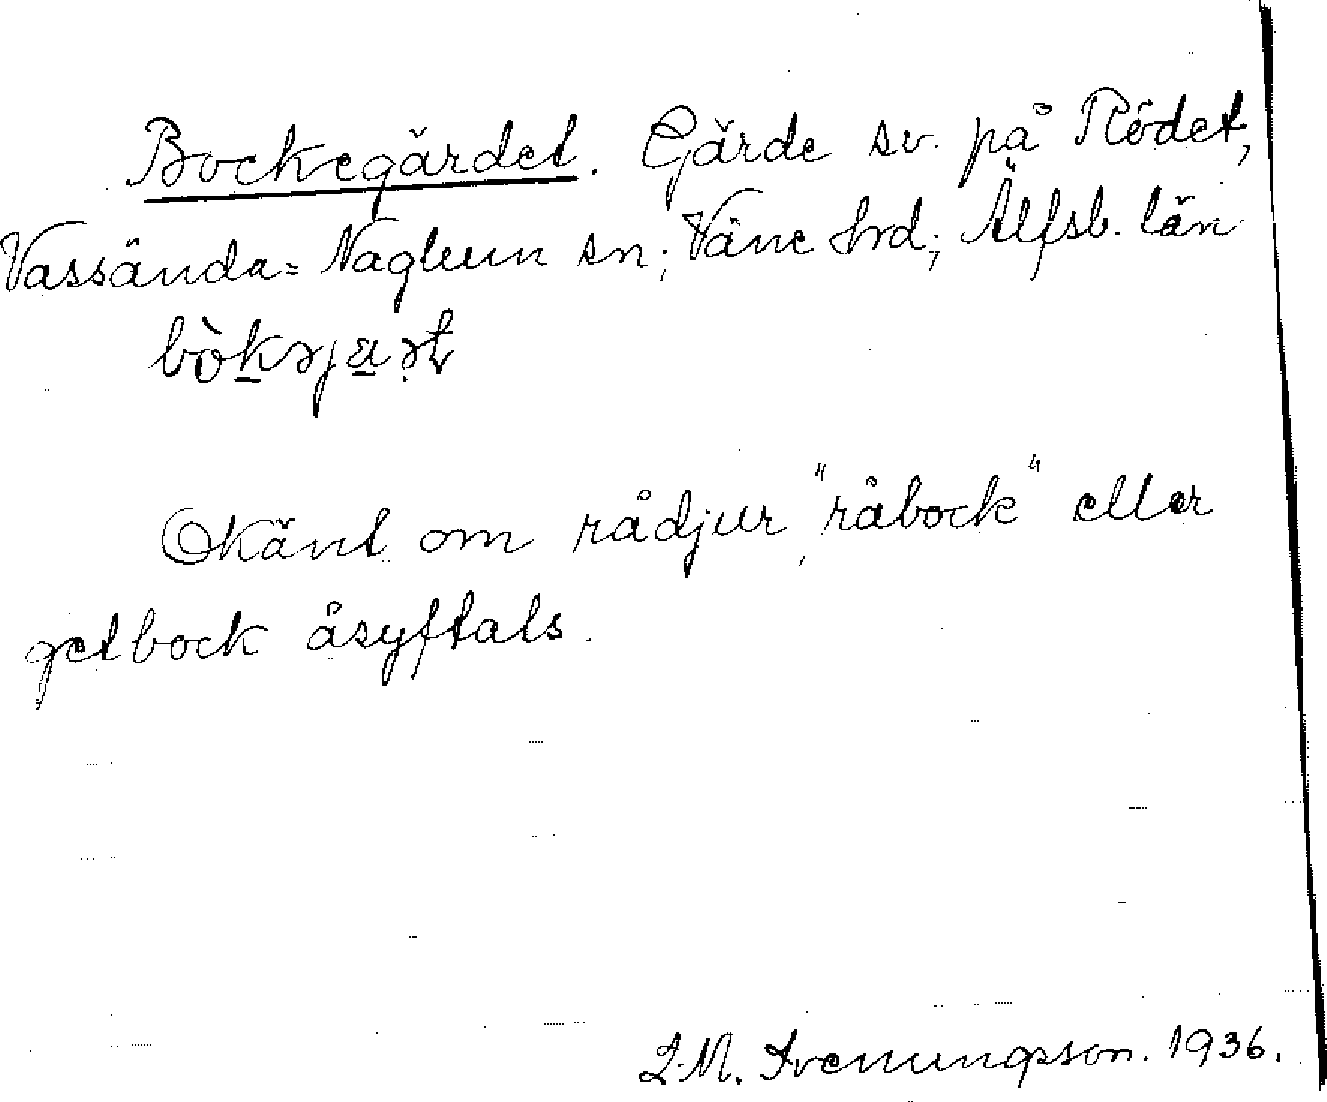 Bockegärdet. Gärde sv. på Rödet,
Vassända=Naglum sn; Väne hrd; Älfsb. län
bòkəjæṣt
Okänt om rådjur, "råbock" eller
getbock åsyftats.
L.M. Svenungsson. 1936.